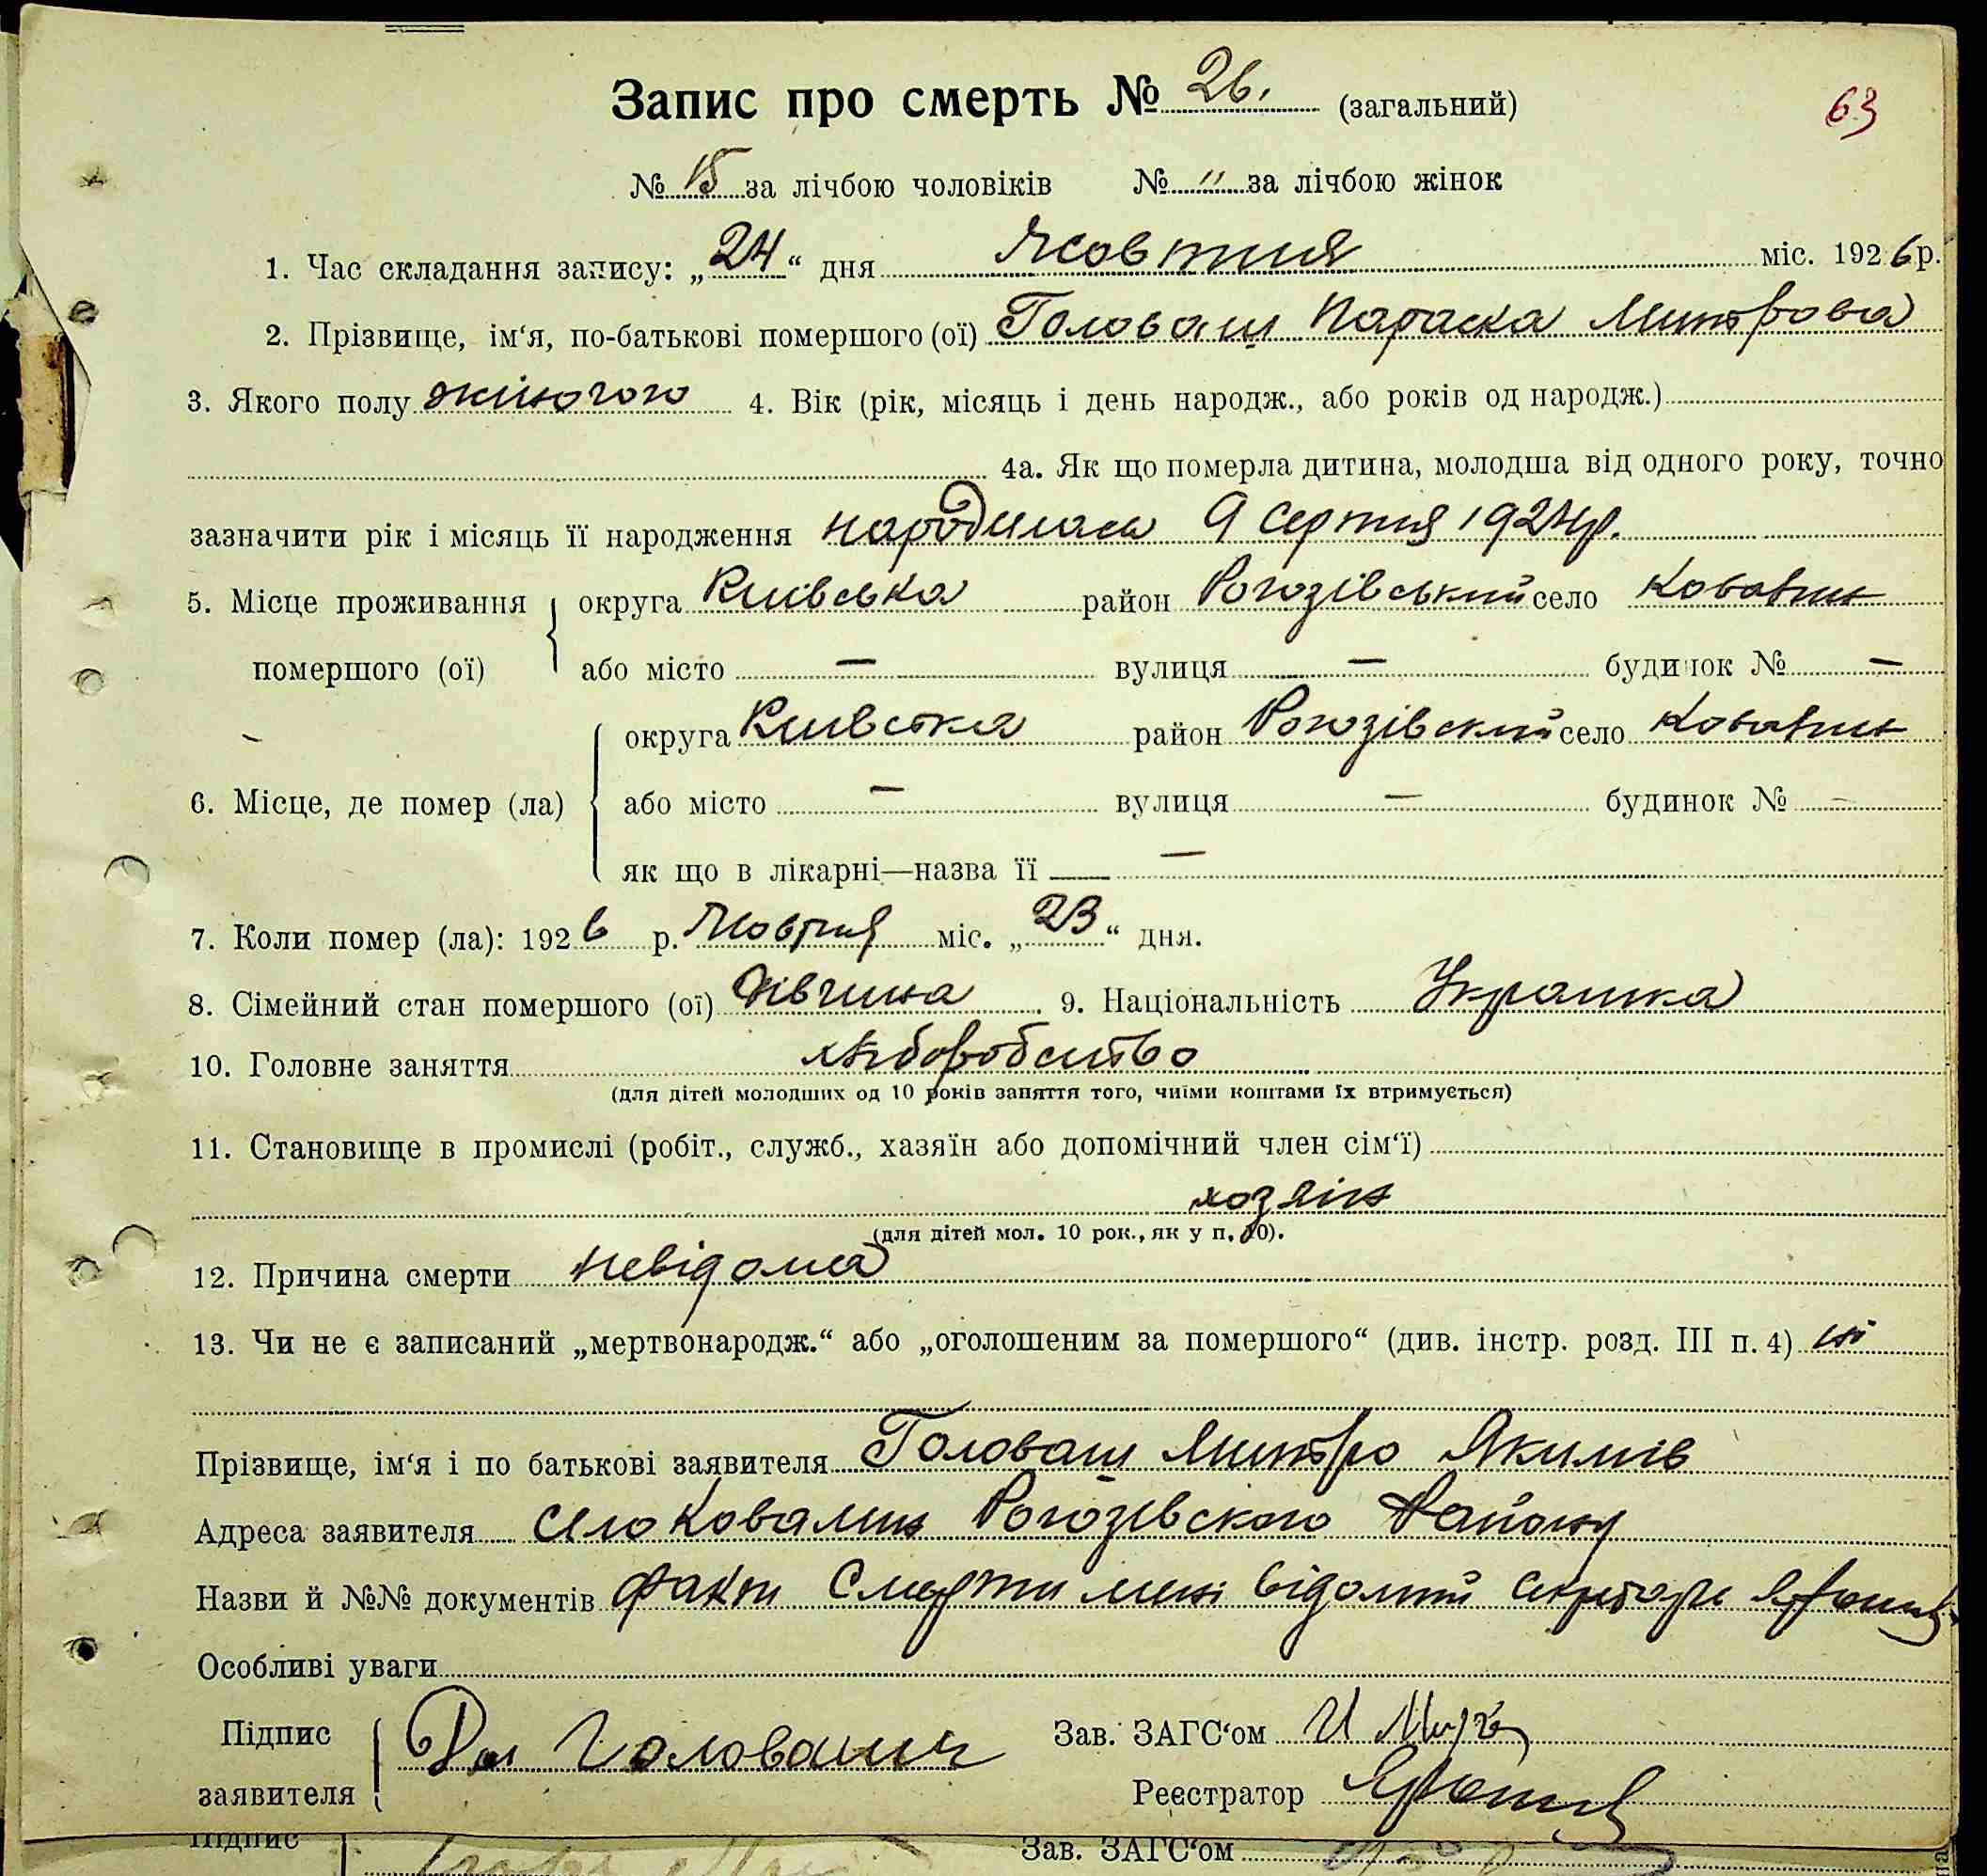 63
Запис про смерть № 26. (загальний)
№ 15 за лічбою чоловіків № 11 за лічбою жінок
1. Час складання запису: „24“ дня Жовтня міс. 1926 р.
2. Прізвище, ім‘я, по-батькові помершого (ої) Головаш Параска Митрова
3. Якого полу жіночого 4. Вік (рік, місяць і день народж., або років од народж.)
4а. Як що померла дитина, молодша від одного року, точно
зазначити рік і місяць її народження народилась 9 серпня 1924р.
5. Місце проживання помершого (ої) округа Київська район Рогозівський село Ковалин
або місто — вулиця — будинок № —
округа Київска район Рогозівский село Ковалин
6. Місце, де помер (ла) або місто — вулиця — будинок № —
як що в лікарні—назва її —
7. Коли помер (ла): 1926 р. Жовтня міс. „23“ дня.
8. Сімейний стан помершого (ої) дівчина 9. Національність Украінка
10. Головне заняття хліборобство
(для дітей молодших од 10 років заняття того, чиїми коштами їх втримується)
11. Становище в промислі (робіт., служб., хазяїн або допомічний член сім‘ї)
хозяін
(для дітей мол. 10 рок., як у п. 10).
12. Причина смерти невідома
13. Чи не є записаний „мертвонародж.“ або „оголошеним за помершого“ (див. інстр. розд. III п. 4) ні
Прізвище, ім‘я і по батькові заявителя Головаш Митро Якимів
Адреса заявителя село Ковалин Рогозівского Району
Назви й №№ документів факт Смерти мені відомий секретарь
Особливі уваги
Підпис заявителя Головаш
Зав. ЗАГС‘ом
Реєстратор
Підпис Зав. ЗАГС‘ом